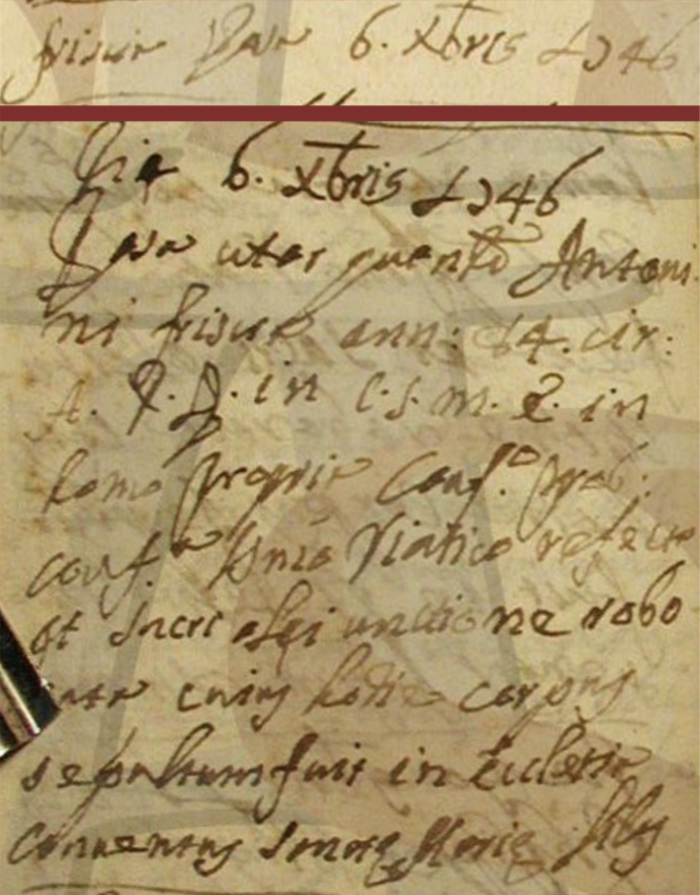 frisina Rosa 6. Xbris 1746
Die 6. Xbris 1746
Rosa uxor quond Antoni
ni frisina ann: 64. cir:
A. R. D. in C. S. M. E. in
domo propria Conf.
conf.ta Smo Viatico refecta
et Sacri olei unctione robo
rata cuius hodie corpus
sepultum fuit in Ecclesia
conventus Sancte Marie